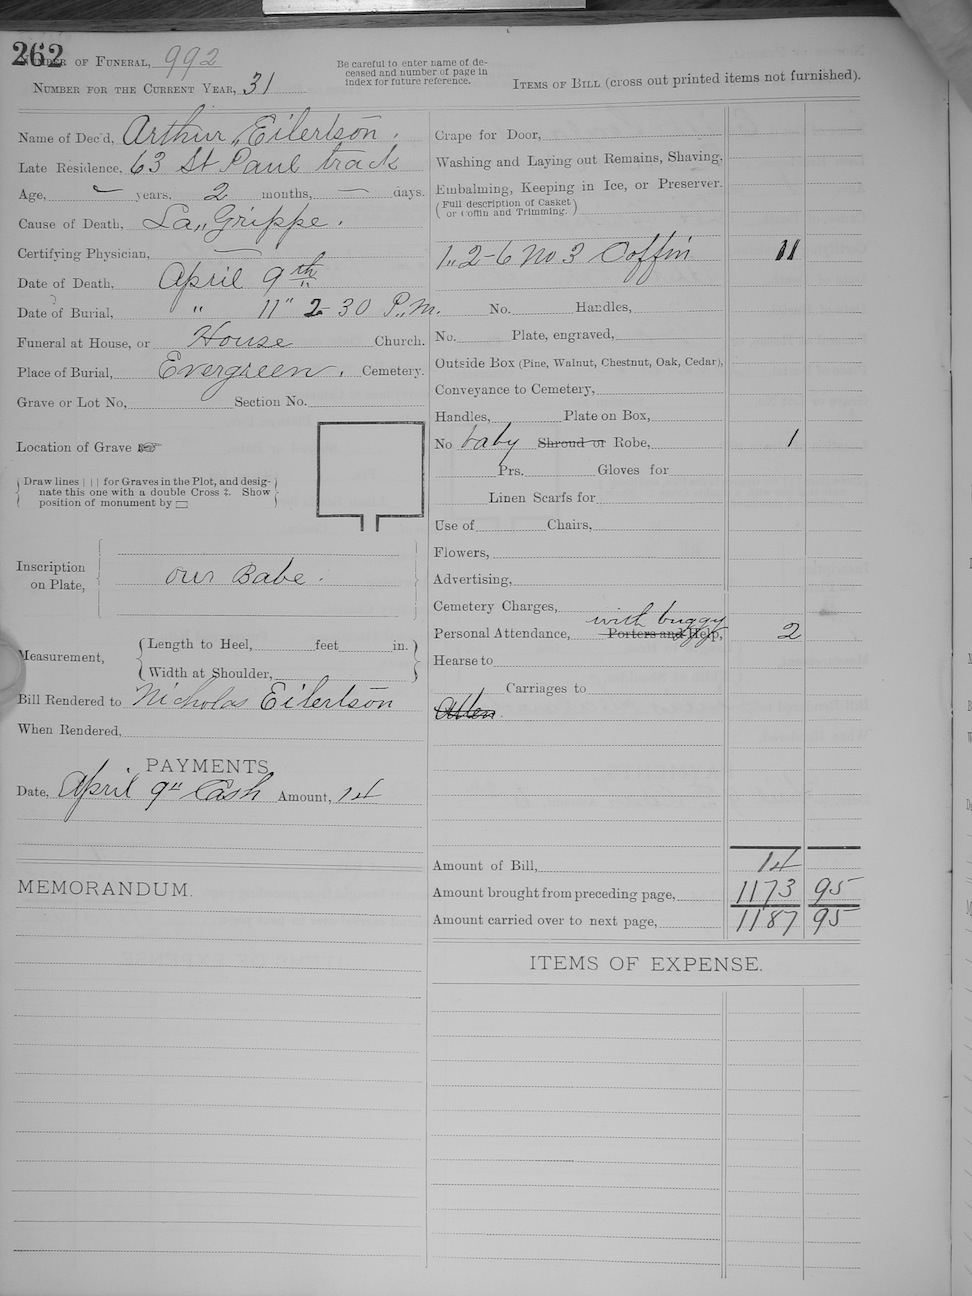 262
NUMBER OF FUNERAL, 992
NUMBER FOR THE CURRENT YEAR, 31
Be careful to enter name of de-
ceased and number of page in
index for future reference.
ITEMS OF BILL (cross out printed items not furnished).
Name of Dec'd, Arthur Eilertson.
Late Residence, 63 St Paul track
Age, years, 2 months, days.
Cause of Death, La,, Grippe.
Certifying Physician,
Date of Death, April 9th
Date of Burial, " 11" 2-30 P.,M.
Funeral at House, or House Church.
Place of Burial, Evergreen. Cemetery.
Grave or Lot No, Section No.
Location of Grave ☞
Draw lines | | | for Graves in the Plot, and desig-
nate this one with a double Cross ‡. Show
position of monument by ▭
Inscription
on Plate,
our Babe.
Measurement,
Length to Heel, feet in.
Width at Shoulder,
Bill Rendered to Nicholas Eilertson
When Rendered,
PAYMENTS
Date, April 9" Cash Amount, 14
MEMORANDUM.
Crape for Door,
Washing and Laying out Remains, Shaving,
Embalming, Keeping in Ice, or Preserver.
(Full description of Casket
or Coffin and Trimming.)
1,, 2-6 No 3 Coffin 11
No. Handles,
No. Plate, engraved,
Outside Box (Pine, Walnut, Chestnut, Oak, Cedar),
Conveyance to Cemetery,
Handles, Plate on Box,
No baby Shroud or Robe, 1
Prs. Gloves for
Linen Scarfs for
Use of Chairs,
Flowers,
Advertising,
Cemetery Charges,
with buggy
Personal Attendance, Porters and Help, 2
Hearse to
Carriages to
Amount of Bill, 14
Amount brought from preceding page, 1173 95
Amount carried over to next page, 1187 95
ITEMS OF EXPENSE.